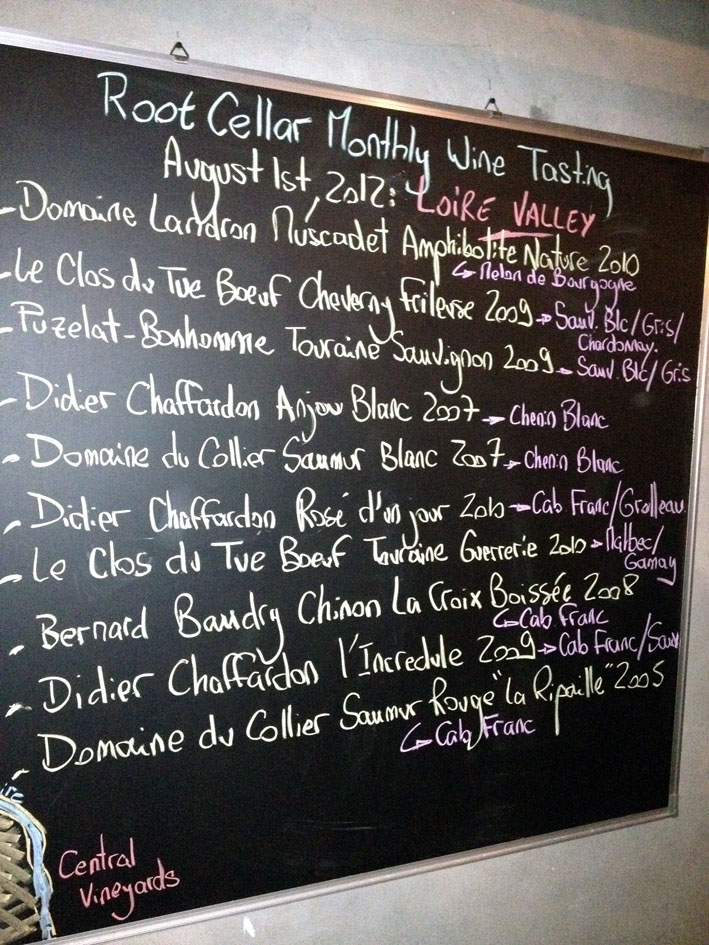 Root Cellar Monthly Wine Tasting
August 1st, 2012: LOIRE VALLEY
- Domaine Landron Muscadet Amphibolite Nature 2010
↳ Melon de Bourgogne
- Le Clos du Tue Boeuf Cheverny Frileuse 2009 → Sauv. Blc/Gris/
Chardonnay.
- Puzelat-Bonhomme Touraine Sauvignon 2009 → Sauv. Blc/Gris
- Didier Chaffardon Anjou Blanc 2007 → Chenin Blanc
- Domaine du Collier Saumur Blanc 2007 → Chenin Blanc
- Didier Chaffardon Rosé d'un jour 2010 → Cab Franc/Grolleau
- Le Clos du Tue Boeuf Touraine Guerrerie 2010 → Malbec/
Gamay
- Bernard Baudry Chinon La Croix Boissée 2008
↳ Cab Franc
- Didier Chaffardon l'Incredule 2009 → Cab Franc/Sauv
- Domaine du Collier Saumur Rouge "la Ripaille" 2005
↳ Cab Franc
Central
Vineyards